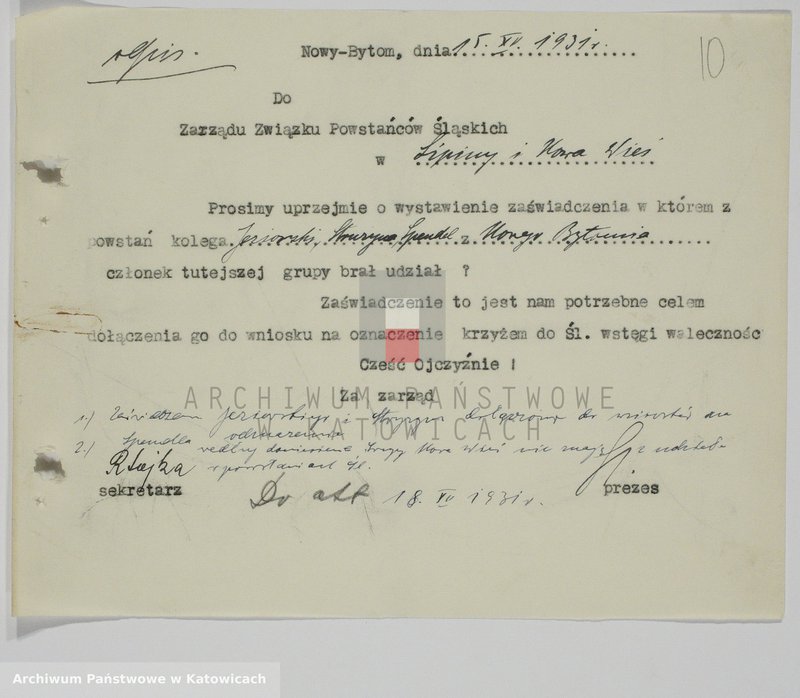 odpis.
Nowy-Bytom, dnia 15. XII. 1931 r.
10
Do
Zarządu Związku Powstańców Śląskich
w Lipiny i Nowa Wieś
Prosimy uprzejmie o wystawienie zaświadczenia w którem z
powstań kolega Jeziorski, Spendel z Nowego Bytomia
członek tutejszej grupy brał udział ?
Zaświadczenie to jest nam potrzebne celem
dołączenia go do wniosku na oznaczenie krzyżem do Śl. wstęgi walecznośc
Cześć Ojczyźnie !
Za zarząd
ARCHIWUM PAŃSTWOWE
W KATOWICACH
1.) Jeziorskiego i dołączono do wniosków na
odznaczenie
2.) Spendla według doniesienia Grupy Nowa Wieś nie udziału
w powstaniach Śl.
sekretarz
prezes
Do akt 18. XII 1931 r.
Archiwum Państwowe w Katowicach